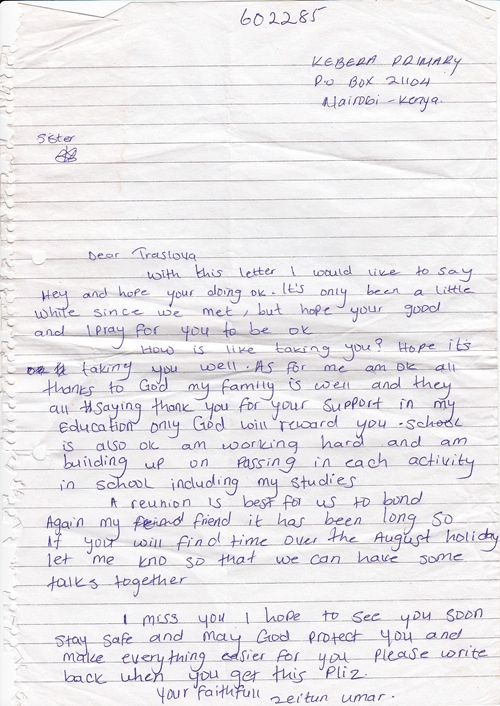 602285
KEBERA PRIMARY
P.o BOX 21104
Nairobi - Kenya.
Sister
Dear Traslova
With this letter I would like to say
Hey and hope your doing ok. It's only been a little
while since we met, but hope your good
and I pray for you to be ok
How is like taking you? Hope it's
taking you well. As for me am ok all
thanks to God my family is well and they
all saying thank you for your support in my
Education only God will reward you. school
is also ok am working hard and am
building up on passing in each activity
in school including my studies
A reunion is best for us to bond
Again my friend it has been long so
If your will find time over the August holiday
let me kno so that we can have some
talks together
I miss you I hope to see you soon
Stay safe and may God protect you and
make everything easier for you please write
back when you get this Pliz.
Your faithfull zeitun umar.